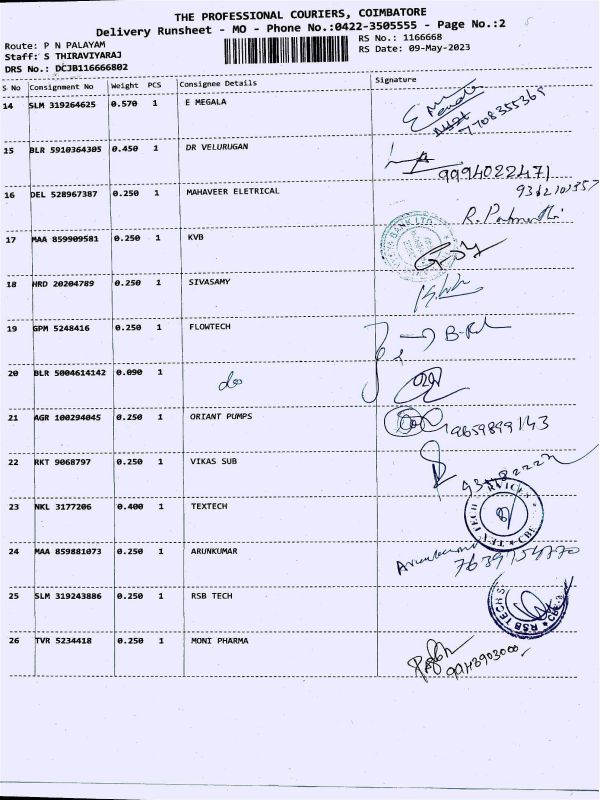 THE PROFESSIONAL COURIERS, COIMBATORE
Delivery Runsheet - MO - Phone No.:0422-3505555 - Page No.:2
Route: P N PALAYAM
RS No.: 1166668
Staff: S THIRAVIYARAJ
RS Date: 09-May-2023
DRS No.: DCJB116666802
S No Consignment No Weight PCS Consignee Details Signature
14 SLM 319264625 0.570 1 E MEGALA
15 BLR 5910364305 0.450 1 DR VELURUGAN
9994022471
16 DEL 528967387 0.250 1 MAHAVEER ELETRICAL
17 MAA 859909581 0.250 1 KVB
18 HRD 20204789 0.250 1 SIVASAMY
19 GPM 5248416 0.250 1 FLOWTECH
20 BLR 5004614142 0.090 1
21 AGR 100294045 0.250 1 ORIANT PUMPS
9659899143
22 RKT 9068797 0.250 1 VIKAS SUB
23 NKL 3177206 0.400 1 TEXTECH
24 MAA 859881073 0.250 1 ARUNKUMAR
25 SLM 319243886 0.250 1 RSB TECH
26 TVR 5234418 0.250 1 MONI PHARMA